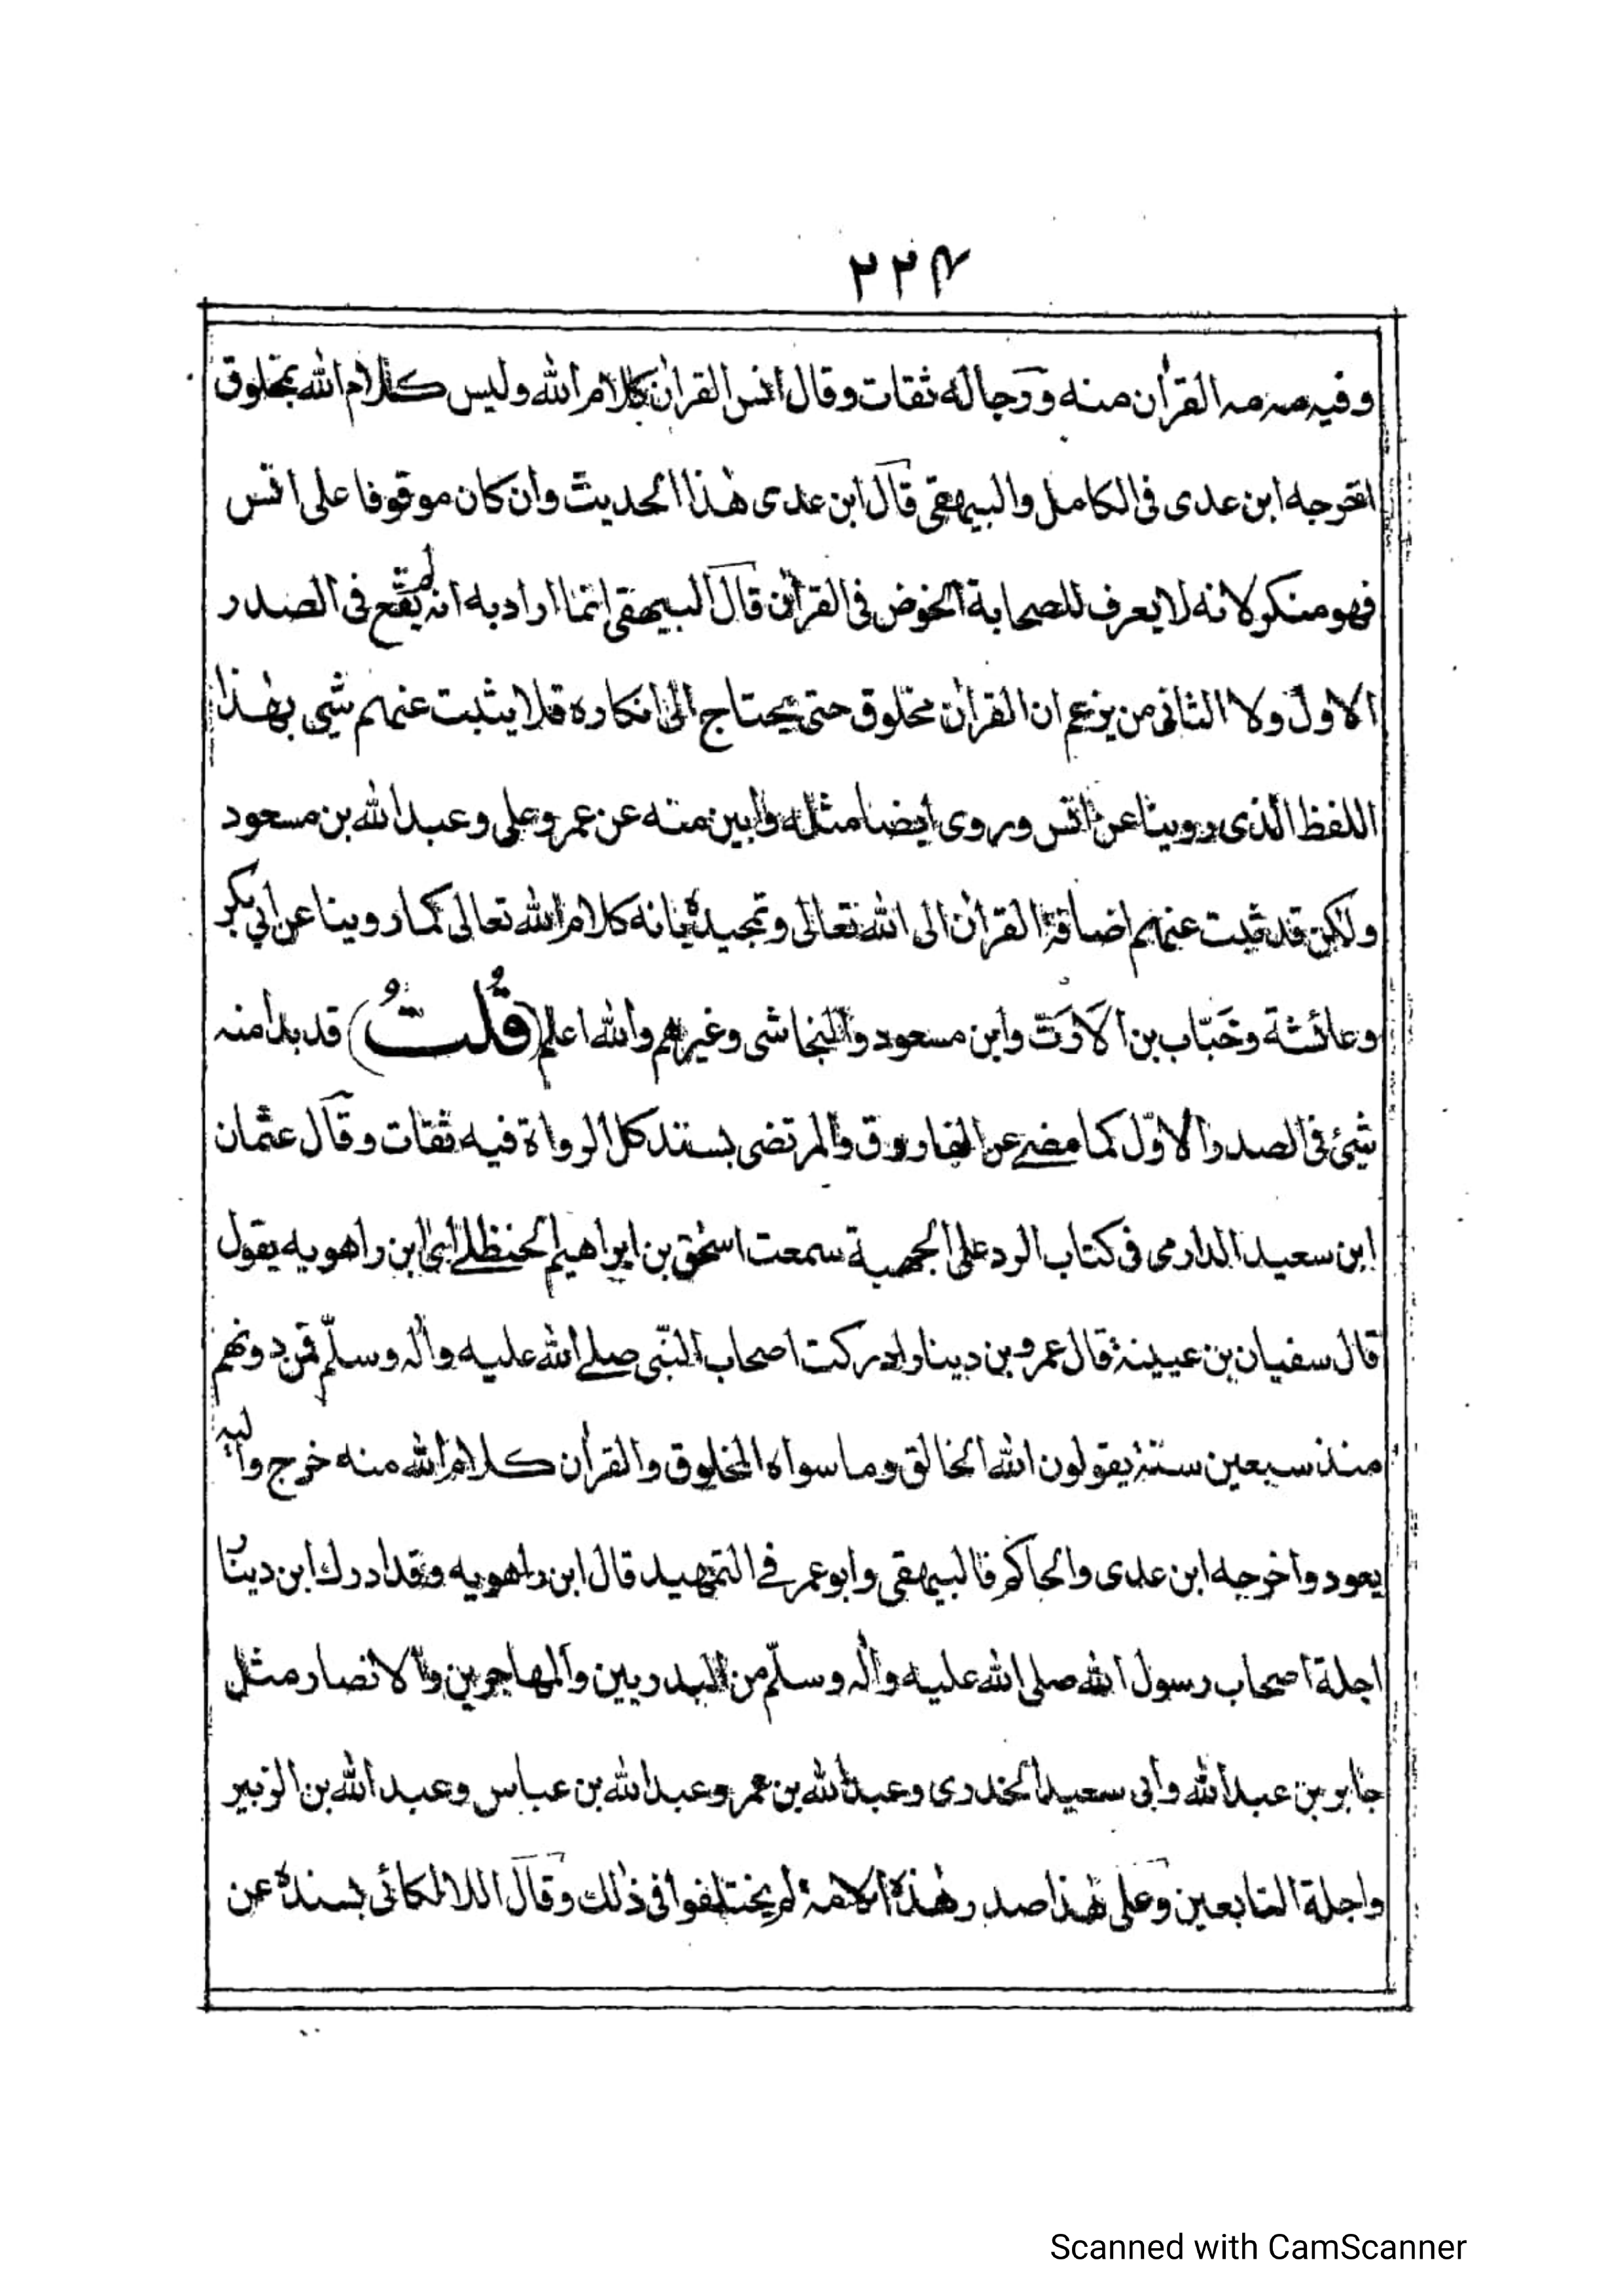 ٢٢٤
وفيه مه مه القراٰن منه ورجاله ثقات وقال انس القراٰن كلام الله وليس كلام الله بمخلوق
اخرجه ابن عدى فى الكامل والبيهقى قال ابن عدى هٰذا الحديث وان كان موقوفا على انس
فهو منكر لانه لا يعرف للصحابة الخوض فى القراٰن قال البيهقى انما اراد به انه لم يقع فى الصدر
الاول ولا الثانى من يزعم ان القراٰن مخلوق حتى يحتاج الى انكاره فلا يثبت عنهم شى بهٰذا
اللفظ الذى روينا عن انس وروى ايضا مثله وابين منه عن عمر وعلى وعبد الله بن مسعود
ولكن قد ثبت عنهم اضافة القراٰن الى الله تعالى وتمجيده بانه كلام الله تعالى كما روينا عن ابي بكر
وعائشة وخَبّاب بن الاَرَتّ وابن مسعود والنجاشى وغيرهم والله اعلم (قُلتُ) قد بدا منه
شئ فى الصدر الاوّل كما مضے عن الفاروق والمرتضى بسند كل الرواة فيه ثقات وقال عثمان
ابن سعيد الدارمى فى كتاب الرد على الجهمية سمعت اسحٰق بن ابراهيم الحنظلے اى ابن راهويه يقول
قال سفيان بن عيينة قال عمرو بن دينار ادركت اصحاب النّبى صلے الله عليه واٰله وسلّم فمن دونهم
منذ سبعين سنة يقولون الله الخالق وما سواه المخلوق والقراٰن كلام الله منه خرج واليه
يعود واخرجه ابن عدى والحاكم فالبيهقى وابو عمر فے التمهيد قال ابن راهويه وقد ادرك ابن دينار
اجلة اصحاب رسول الله صلى الله عليه واٰله وسلّم من البدريين والمهاجرين والانصار مثل
جابر بن عبد الله وابى سعيد الخدرى وعبد الله بن عمر وعبد الله بن عباس وعبد الله بن الزبير
واجلة التابعين وعلى هٰذا صدر هٰذه الامة لم يختلفوا فى ذٰلك وقال اللالكائى بسنده عن
Scanned with CamScanner